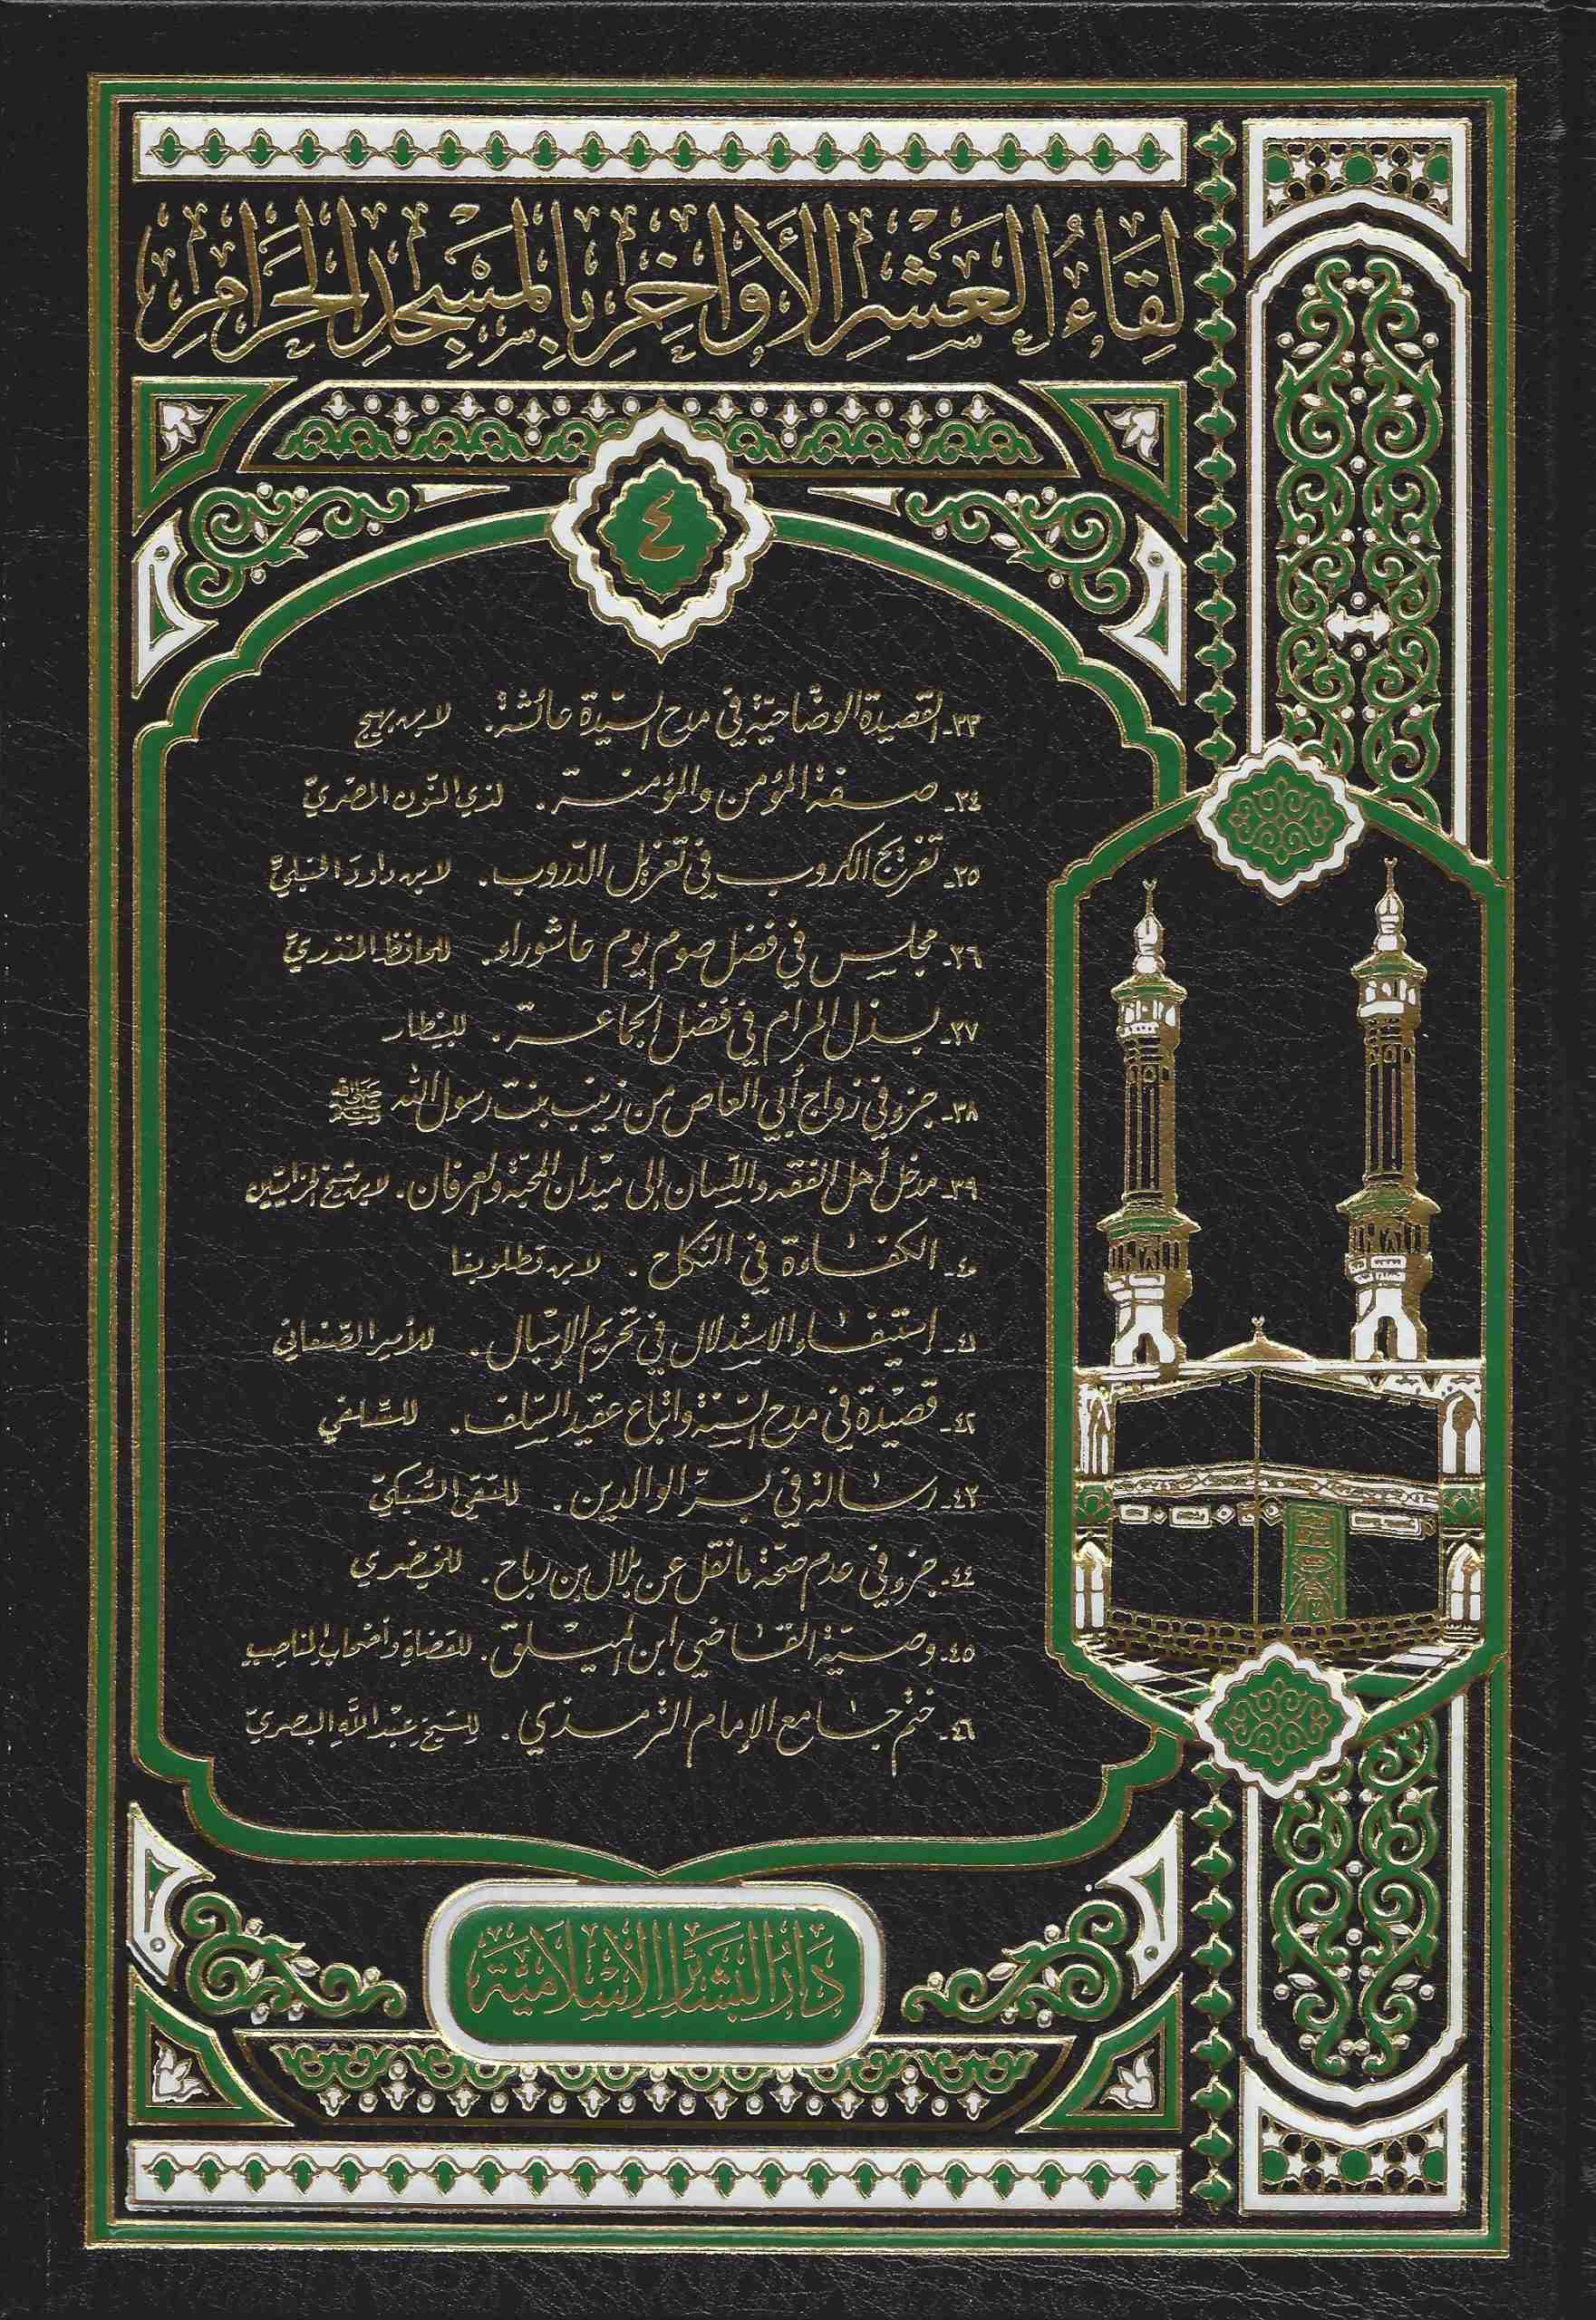 لِقَاءُ العَشْرِ الأَوَاخِرِ بِالمَسْجِدِ الحَرَامِ
٤
٣٣- القصيدة الوضّاحيّة في مدح السيّدة عائشة. لابن بهيج
٣٤- صفة المؤمن والمؤمنة. لذي النّون المصريّ
٣٥- تفريج الكروب في تعزيل الدّروب. لابن داود الحنبليّ
٣٦- مجلس في فضل صوم يوم عاشوراء. للحافظ المنذريّ
٣٧- بذل المرام في فضل الجماعة. للبيطار
٣٨- جزء في زواج أبي العاص من زينب بنت رسول الله ﷺ
٣٩- مدخل أهل الفقه واللّسان إلى ميدان المحبّة والعرفان. لابن شيخ الحزاميّين
٤٠- الكفاءة في النّكاح. لابن قطلوبغا
٤١- إستيفاء الاستدلال في تحريم الإسبال. للأمير الصّنعاني
٤٢- قصيدة في مدح السّنة واتباع عقيد السّلف. للسّلفي
٤٣- رسالة في برّ الوالدين. للتّقي السُّبكيّ
٤٤- جزء في عدم صحّة ما نقل عن بلال بن رباح. للخيضري
٤٥- وصيّة القاضي ابن الميلق. للقضاة وأصحاب المناصب
٤٦- ختم جامع الإمام الترمذي. للشيخ عبد الله البصريّ
دَارُ البَشَائِرِ الإِسْلَامِيَّة